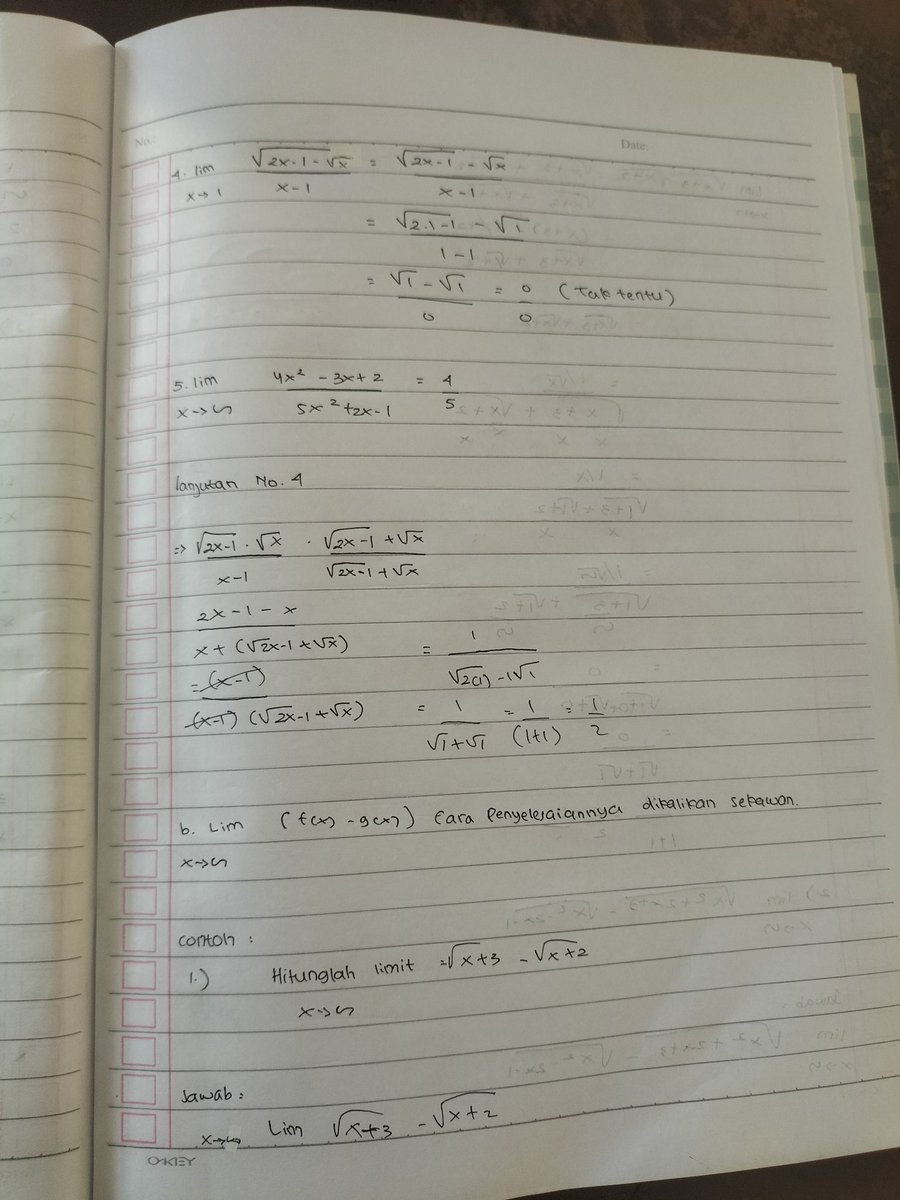 No.: Date.
4. lim √2x-1-√x = √2x-1 - √x
x→1 x-1 x-1
= √2.1-1 - √1
1-1
= √1 - √1 = 0 (Tak tentu)
0 0
5. lim 4x² - 3x+2 = 4
x→∞ 5x²+2x-1 5
lanjutan No. 4
⇒ √2x-1 . √x . √2x-1 + √x
x-1 √2x-1 + √x
2x-1-x
x+ (√2x-1+√x) = 1
= (x-1) √2(1) -1√1
(x-1) (√2x-1+√x) = 1 = 1 = 1
√1+√1 (1+1) 2
b. Lim (f(x) - g(x)) Cara Penyelesaiannya dikalikan sekawan.
x→∞
contoh :
1.) Hitunglah limit =√x+3 - √x+2
x→∞
Jawab :
x→∞ Lim √x+3 - √x+2
OKEY